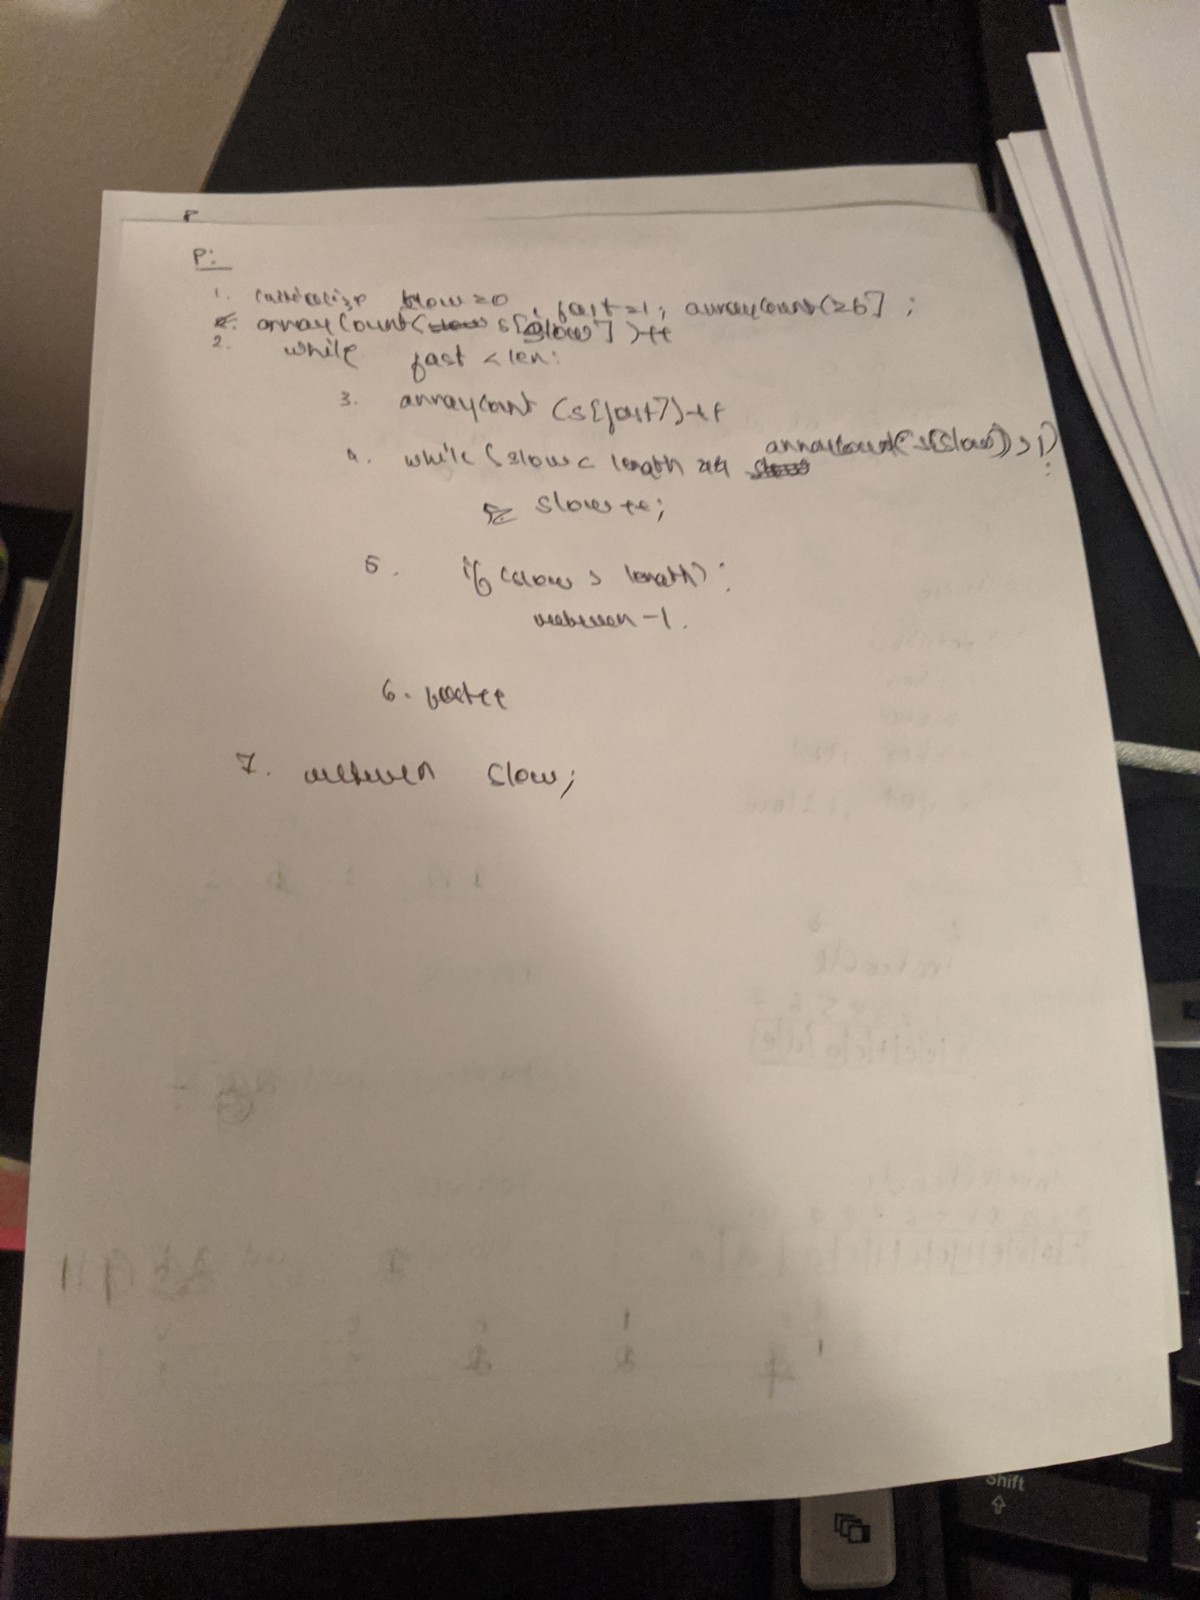 P:
1. initialize slow=0 ; fast=1; arraycount[26] ;
arraycount(s[slow])++
2. while fast < len:
3. arraycount (s[fast])++
4. while (slow < length && arraycount(s[slow])>1)
:
slow++;
5. if (slow > length):
return -1.
6. fast++
7. return slow;
Shift